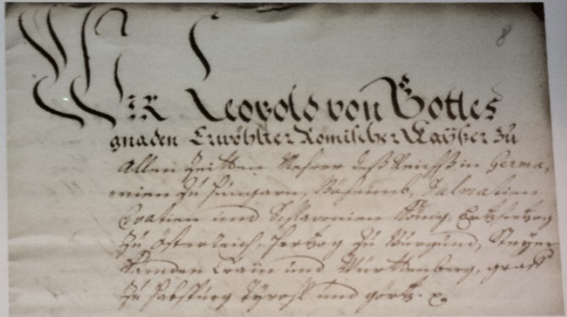 8
Wir Leopold von Gottes
gnaden Erwöhlter Römischer Kayser zu
Allen Zeitten Mehrer deß Reichs in Germa,
nien zu Hungarn, Böheimb, Dalmatien
Croatien und Sclavonien König, Ertzhertzog
zu Österreich, Hertzog zu Burgund, Steyer
Kärndten Crain und Württemberg, graff
zu Habspurg Tyroll und görtz.